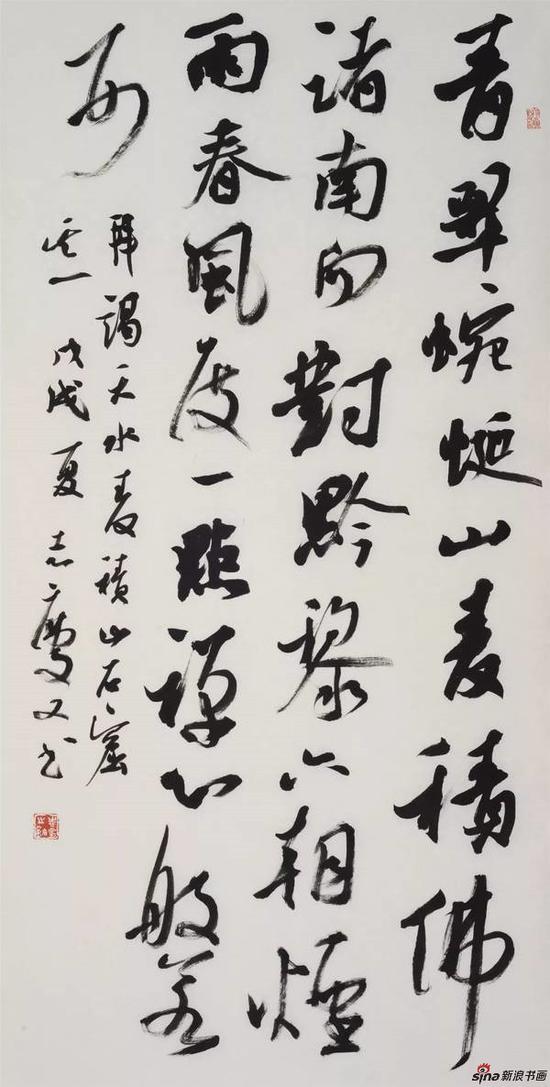 青翠蜿蜒山麦積佛
諸南向對黔黎六朝煙
雨春風度一點禪心般若
拜謁天水麦積山石窟
其一 戊戌夏 志慶又书
sina新浪书画